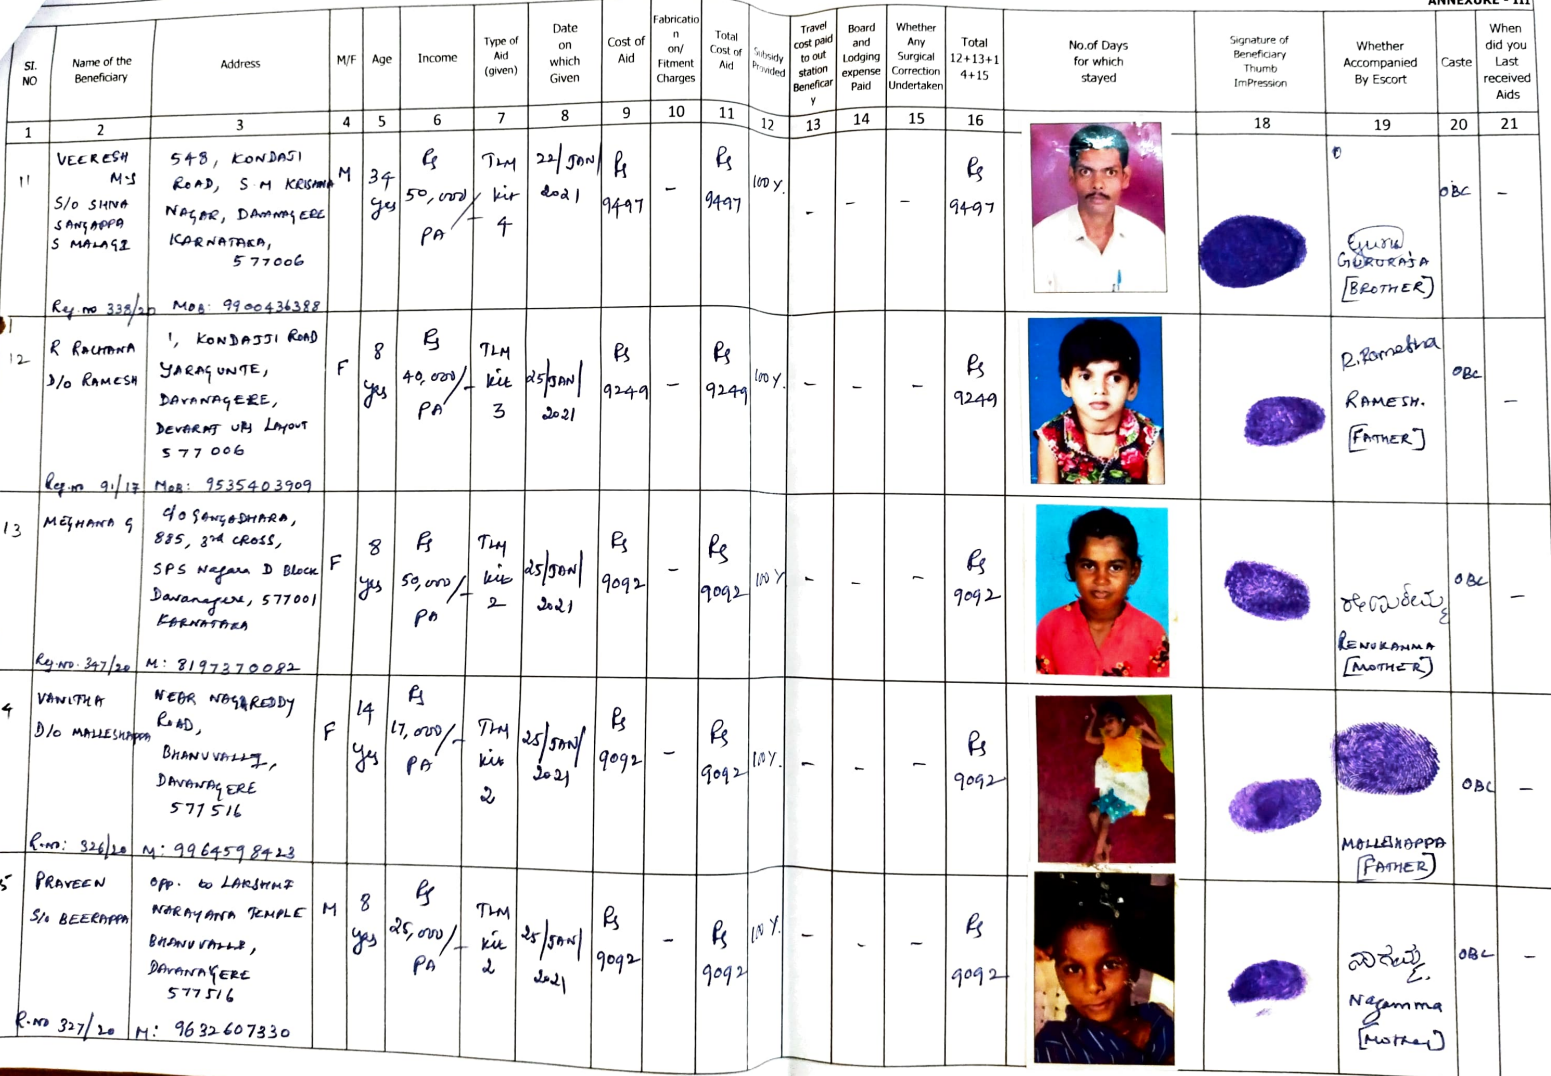 ANNEXURE - III
SI. NO
Name of the Beneficiary
Address
M/F
Age
Income
Type of Aid (given)
Date on which Given
Cost of Aid
Fabricatio n on/ Fitment Charges
Total Cost of Aid
Subsidy Provided
Travel cost paid to out station Beneficar y
Board and Lodging expense Paid
Whether Any Surgical Correction Undertaken
Total 12+13+1 4+15
No.of Days for which stayed
Signature of Beneficiary Thumb ImPression
Whether Accompanied By Escort
Caste
When did you Last received Aids
1 2 3 4 5 6 7 8 9 10 11 12 13 14 15 16 18 19 20 21
11
VEERESH
M.S
S/o SHIVA
SANGAPPA
S MALAGI
Reg.no 338/20
548, KONDAJI
ROAD, S M KRISHNA
NAGAR, DAVANAGERE
KARNATAKA,
577006
MOB: 9900436388
M
34 yes
Rs 50,000/- PA
TLM Kit 4
22/JAN/2021
Rs 9497
-
Rs 9497
100 %.
-
-
-
Rs 9497
GURURAJA
[BROTHER]
OBC
-
12
R RACHANA
D/o RAMESH
Reg.no 91/17
1, KONDAJJI ROAD
YARAGUNTE,
DAVANAGERE,
DEVARAJ URS LAYOUT
577006
MOB: 9535403909
F
8 yes
Rs 40,000/- PA
TLM Kit 3
25/JAN/2021
Rs 9249
-
Rs 9249
100 %.
-
-
-
Rs 9249
RAMESH.
[FATHER]
OBC
-
13
MEGHANA G
Reg.no. 347/20
C/o GANGADHARA,
885, 3rd CROSS,
SPS Nagara D Block
Davanagere, 577001
KARNATAKA
M: 8197370082
F
8 yes
Rs 50,000/- PA
TLM Kit 2
25/JAN/2021
Rs 9092
-
Rs 9092
100 %
-
-
-
Rs 9092
RENUKAMMA
[MOTHER]
OBC
-
4
VANITHA
D/o MALLESHAPPA
R.no: 326/20
NEAR NAGAREDDY
ROAD,
BHANUVALLI,
DAVANAGERE
577516
M: 9964598423
F
14 yes
Rs 17,000/- PA
TLM Kit 2
25/JAN/2021
Rs 9092
-
Rs 9092
100 %.
-
-
-
Rs 9092
MALLESHAPPA
[FATHER]
OBC
-
5
PRAVEEN
S/o BEERAPPA
R.no 327/20
OPP. to LAKSHMI
NARAYANA TEMPLE
BHANUVALLI,
DAVANAGERE
577516
M: 9632607330
M
8 yes
Rs 25,000/- PA
TLM Kit 2
25/JAN/2021
Rs 9092
-
Rs 9092
100 %.
-
-
-
Rs 9092
ನಾಗಮ್ಮ
Nagamma
[Mother]
OBC
-